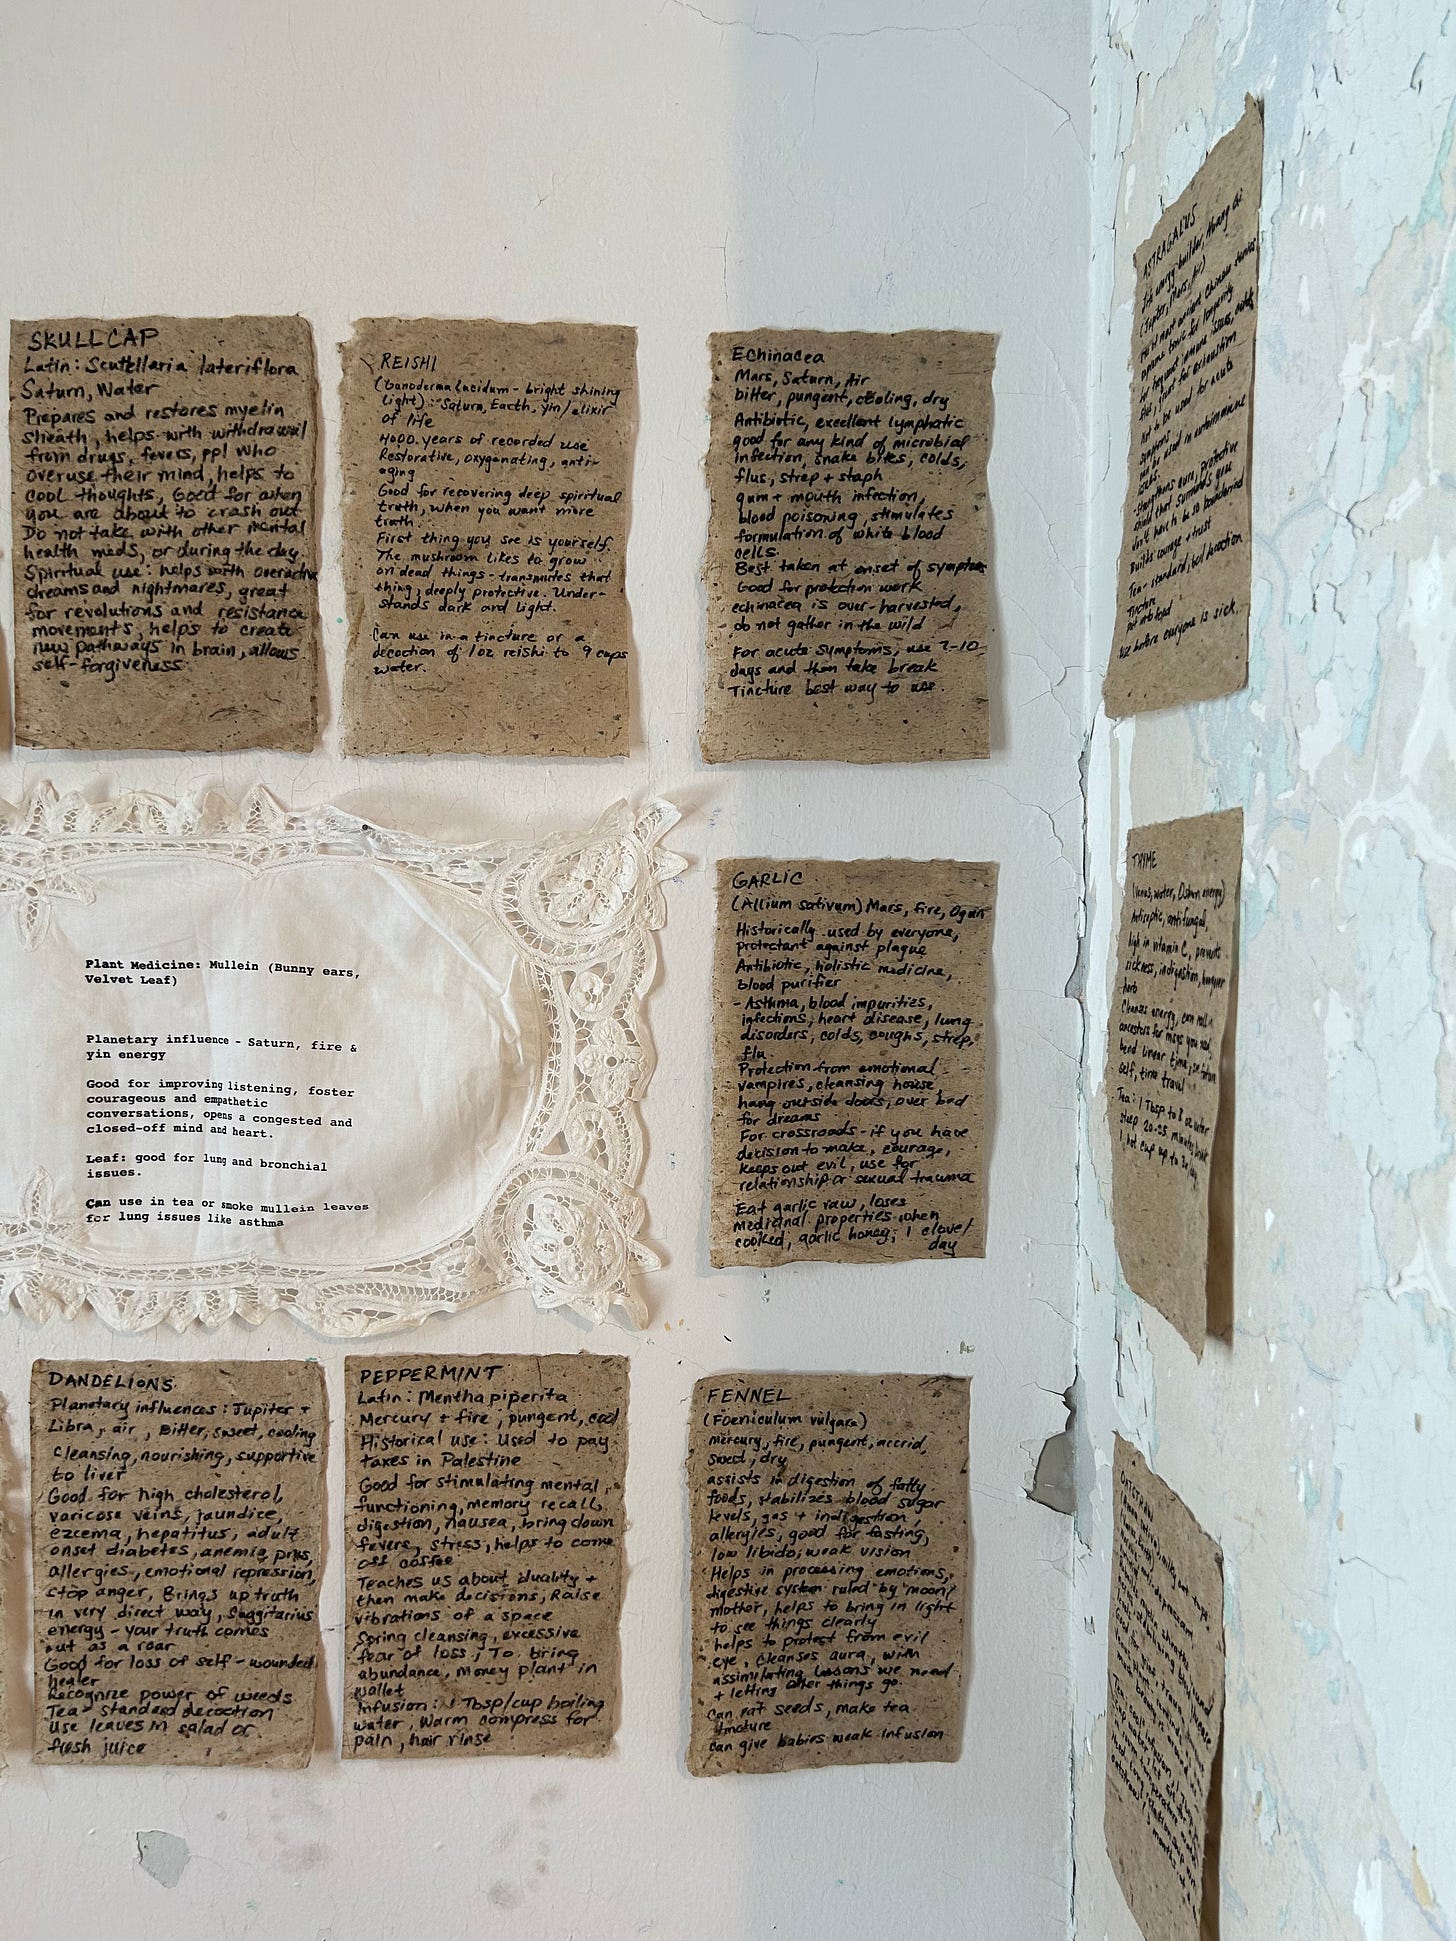 SKULLCAP
Latin: Scutellaria lateriflora
Saturn, Water
Prepares and restores myelin
sheath, helps with withdrawal
from drugs, fevers, ppl who
overuse their mind, helps to
cool thoughts, Good for when
you are about to crash out
Do not take with other mental
health meds, or during the day.
Spiritual use: helps with overactive
dreams and nightmares, great
for revolutions and resistance
movements, helps to create
new pathways in brain, allows
self-forgiveness.
REISHI
(Ganoderma lucidum - bright shining
light): Saturn, Earth, yin/elixir
of life
4000 years of recorded use
Restorative, oxygenating, anti-
aging
Good for recovering deep spiritual
truth, when you want more
truth.
First thing you see is yourself.
The mushroom likes to grow
on dead things - transmutes that
thing, deeply protective. Under-
stands dark and light.
Can use in a tincture or a
decoction of 1oz reishi to 9 cups
water.
Echinacea
Mars, Saturn, Air
bitter, pungent, cooling, dry
Antibiotic, excellent lymphatic
good for any kind of microbial
infection, snake bites, colds,
flus, strep + staph
gum + mouth infection,
blood poisoning, stimulates
formulation of white blood
cells.
Best taken at onset of symptoms
Good for protection work
echinacea is over-harvested,
do not gather in the wild
For acute symptoms, use 7-10
days and then take break
Tincture best way to use.
ASTRAGALUS
(Jupiter, Mars, Air)
for frequent immune issues,
Not to be used for acute
symptoms
Builds courage + trust
Tincture
Use before everyone is sick.
Plant Medicine: Mullein (Bunny ears,
Velvet Leaf)
Planetary influence - Saturn, fire &
yin energy
Good for improving listening, foster
courageous and empathetic
conversations, opens a congested and
closed-off mind and heart.
Leaf: good for lung and bronchial
issues.
Can use in tea or smoke mullein leaves
for lung issues like asthma
GARLIC
(Allium sativum) Mars, fire, Ogun
Historically used by everyone,
protectant against plague
Antibiotic, holistic medicine,
blood purifier
- Asthma, blood impurities,
infections, heart disease, lung
disorders, colds, coughs, strep,
flu.
Protection from emotional
vampires, cleansing house
hang outside doors, over bed
for dreams
For crossroads - if you have
decision to make, courage,
keeps out evil, use for
relationship or sexual trauma
Eat garlic raw, loses
medicinal properties when
cooked, garlic honey, 1 clove/
day
THYME
(Venus, water, Oshun energy)
Antiseptic, antifungal,
high in vitamin C, prevents
sickness, indigestion, hangover
herb
Cleanses energy, can call
ancestors for
bend linear time,
self, time travel
Tea: 1 Tbsp to 8 oz water
steep 20-25 minutes,
1 hot cup up to 3x day
DANDELIONS
Planetary influences: Jupiter +
Libra, air, Bitter, sweet, cooling
Cleansing, nourishing, supportive
to liver
Good for high cholesterol,
varicose veins, jaundice,
ezcema, hepatitus, adult
onset diabetes, anemia, pms,
allergies, emotional repression,
stop anger, Brings up truth
in very direct way, Saggitarius
energy - your truth comes
out as a roar
Good for loss of self - wounded
healer
Recognize power of weeds
Tea - standard decoction
Use leaves in salad or
fresh juice
PEPPERMINT
Latin: Mentha piperita
Mercury + fire, pungent, cool
Historical use: Used to pay
taxes in Palestine
Good for stimulating mental
functioning, memory recall,
digestion, nausea, bring down
fevers, stress, helps to come
off coffee
Teaches us about duality +
then make decisions, Raise
vibrations of a space
Spring cleansing, excessive
fear of loss; To bring
abundance, money plant in
wallet
Infusion: 1 Tbsp/cup boiling
water, warm compress for
pain, hair rinse
FENNEL
(Foeniculum vulgare)
mercury, fire, pungent, accrid,
sweet, dry
assists in digestion of fatty
foods, stabilizes blood sugar
levels, gas + indigestion,
allergies, good for fasting,
low libido, weak vision
Helps in processing emotions,
digestive system ruled by moon/
mother, helps to bring in light
to see things clearly
helps to protect from evil
eye, cleanses aura, with
assimilating lessons we need
+ letting other things go.
Can eat seeds, make tea
tincture
Can give babies weak infusion
OATSTRAW